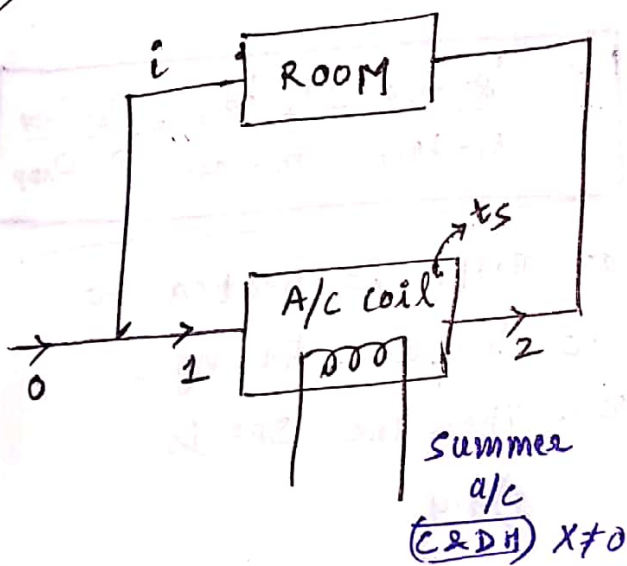 i
ROOM
ts
A/C coil
0
1
2
summer
a/c
C & DH X≠0